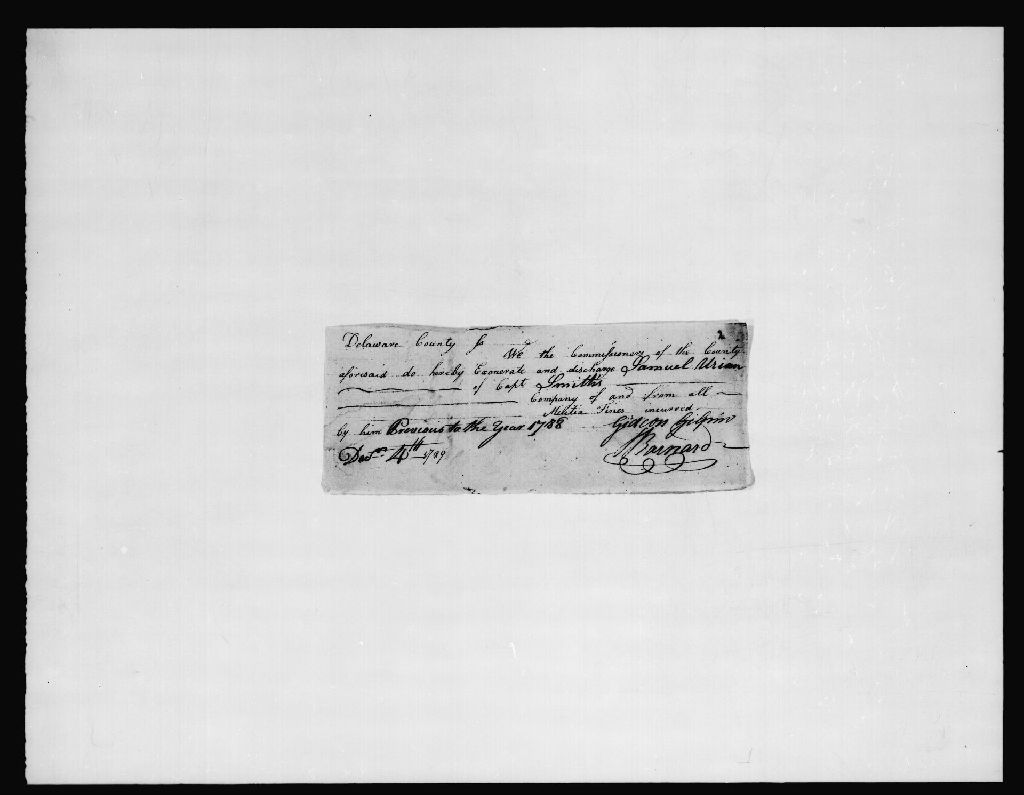 Delaware County Ss
We the Commissioners of the County
aforsaid do hereby Exonerate and discharge Samuel Urian
of Capt Smith's
Company of and from all
Militia Fines incurred
by him Previous to the Year 1788
Gideon Gilpin
Decr 4th 1789
J Barnard